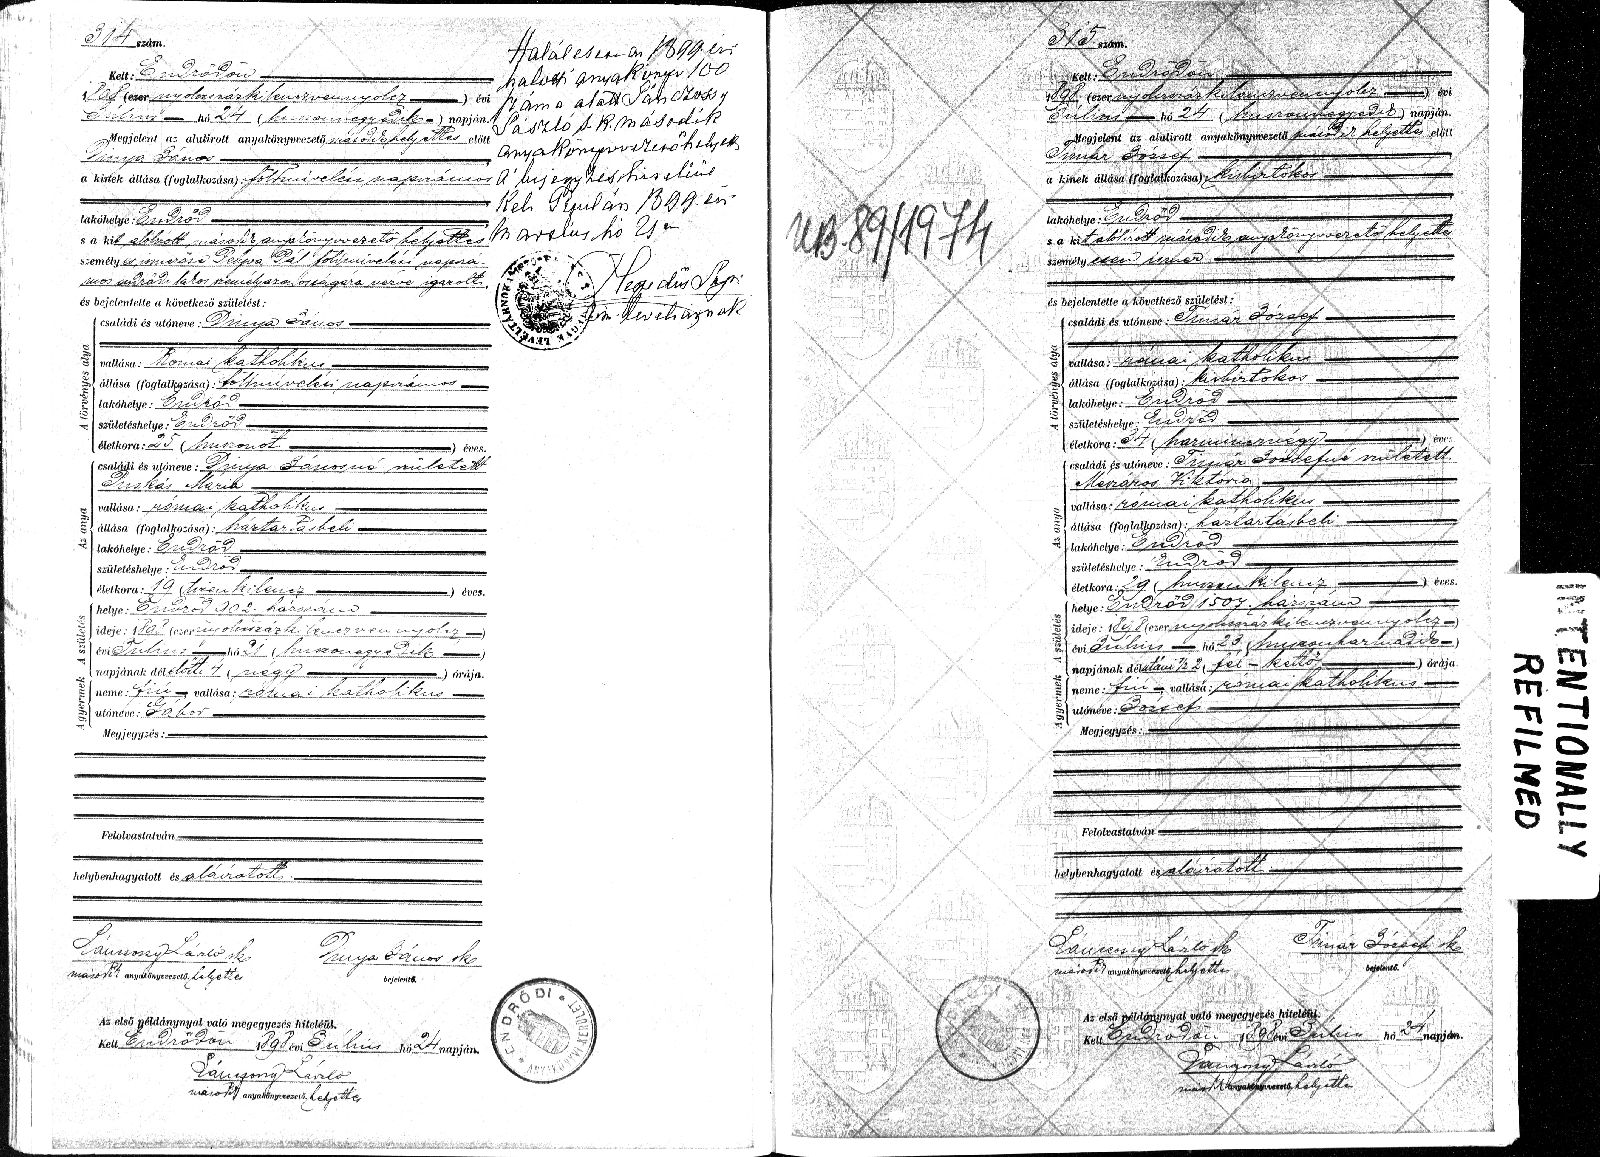 314 szám.
Kelt: Endrődön
1898 (ezer nyolczszázkilenczvennyolcz) évi
Julius hó 24 (huszonnegyedik) napján.
Megjelent az alulirott anyakönyvvezető második helyettes előtt
Dinya János
a kinek állása (foglalkozása): földmivelési napszámos
lakóhelye: Endrőd
s a kit alólirott második anyakönyvvezető helyettes
személy
és bejelentette a következő születést:
A törvényes atya
családi és utóneve: Dinya János
vallása: Római katholikus
állása (foglalkozása): földmivelési napszámos
lakóhelye: Endrőd
születéshelye: Endrőd
életkora: 25 (huszonöt) éves.
Az anya
családi és utóneve: Dinya Jánosné született
Puskás Mária
vallása: római katholikus
állása (foglalkozása): háztartásbeli
lakóhelye: Endrőd
születéshelye: Endrőd
életkora: 19 (tizenkilencz) éves.
A születés
helye: Endrőd 302. házszám
ideje: 1898 (ezer nyolczszázkilenczvennyolcz)
évi Julius hó 21 ( )
napjának délelőtti 4 (négy) órája.
A gyermek
neme: fiú vallása: római katholikus
utóneve: Gábor
Megjegyzés:
Felolvastatván
helybenhagyatott és aláiratott.
László sk Dinya János sk
második anyakönyvvezető helyettes bejelentő.
Az első példánynyal való megegyezés hiteléül.
Kelt Endrődön 1898 évi Julius hó 24 napján.
László
második anyakönyvvezető helyettes
ENDRŐDI
Haláleset az 1899 évi
halotti anyakönyv 100
száma alatt
László s.k. második
anyakönyvvezető helyettes
á bejegyzés hiteléül
Kelt Gyulán 1899 évi
Marczius hó 21 én
Hegedűs
315 szám.
Kelt: Endrődön
1898 (ezer nyolczszázkilenczvennyolcz) évi
Julius hó 24 (huszonnegyedik) napján.
Megjelent az alulirott anyakönyvvezető második helyettes előtt
Timár József
a kinek állása (foglalkozása): kisbirtokos
lakóhelye: Endrőd
s a kit alólirott második anyakönyvvezető helyettes
személyesen ismer
és bejelentette a következő születést:
A törvényes atya
családi és utóneve: Timár József
vallása: római katholikus
állása (foglalkozása): kisbirtokos
lakóhelye: Endrőd
születéshelye: Endrőd
életkora: 34 (harmincznégy) éves.
Az anya
családi és utóneve: Timár Józsefné született
Mészáros Viktoria
vallása: római katholikus
állása (foglalkozása): háztartásbeli
lakóhelye: Endrőd
születéshelye: Endrőd
életkora: 29 (huszonkilencz) éves.
A születés
helye: Endrőd 1507. házszám
ideje: 1898 (ezer nyolczszázkilenczvennyolcz)
évi Julius hó 23 (huszonharmadik)
napjának délutáni ½ 2 (fél-kettő) órája.
A gyermek
neme: fiú vallása: római katholikus
utóneve: József
Megjegyzés:
Felolvastatván
helybenhagyatott és aláiratott.
László sk Timár József sk
második anyakönyvvezető helyettes bejelentő.
Az első példánynyal való megegyezés hiteléül.
Kelt Endrődön 1898 évi Julius hó 24 napján.
László
második anyakönyvvezető helyettes
89/1974
INTENTIONALLY
REFILMED